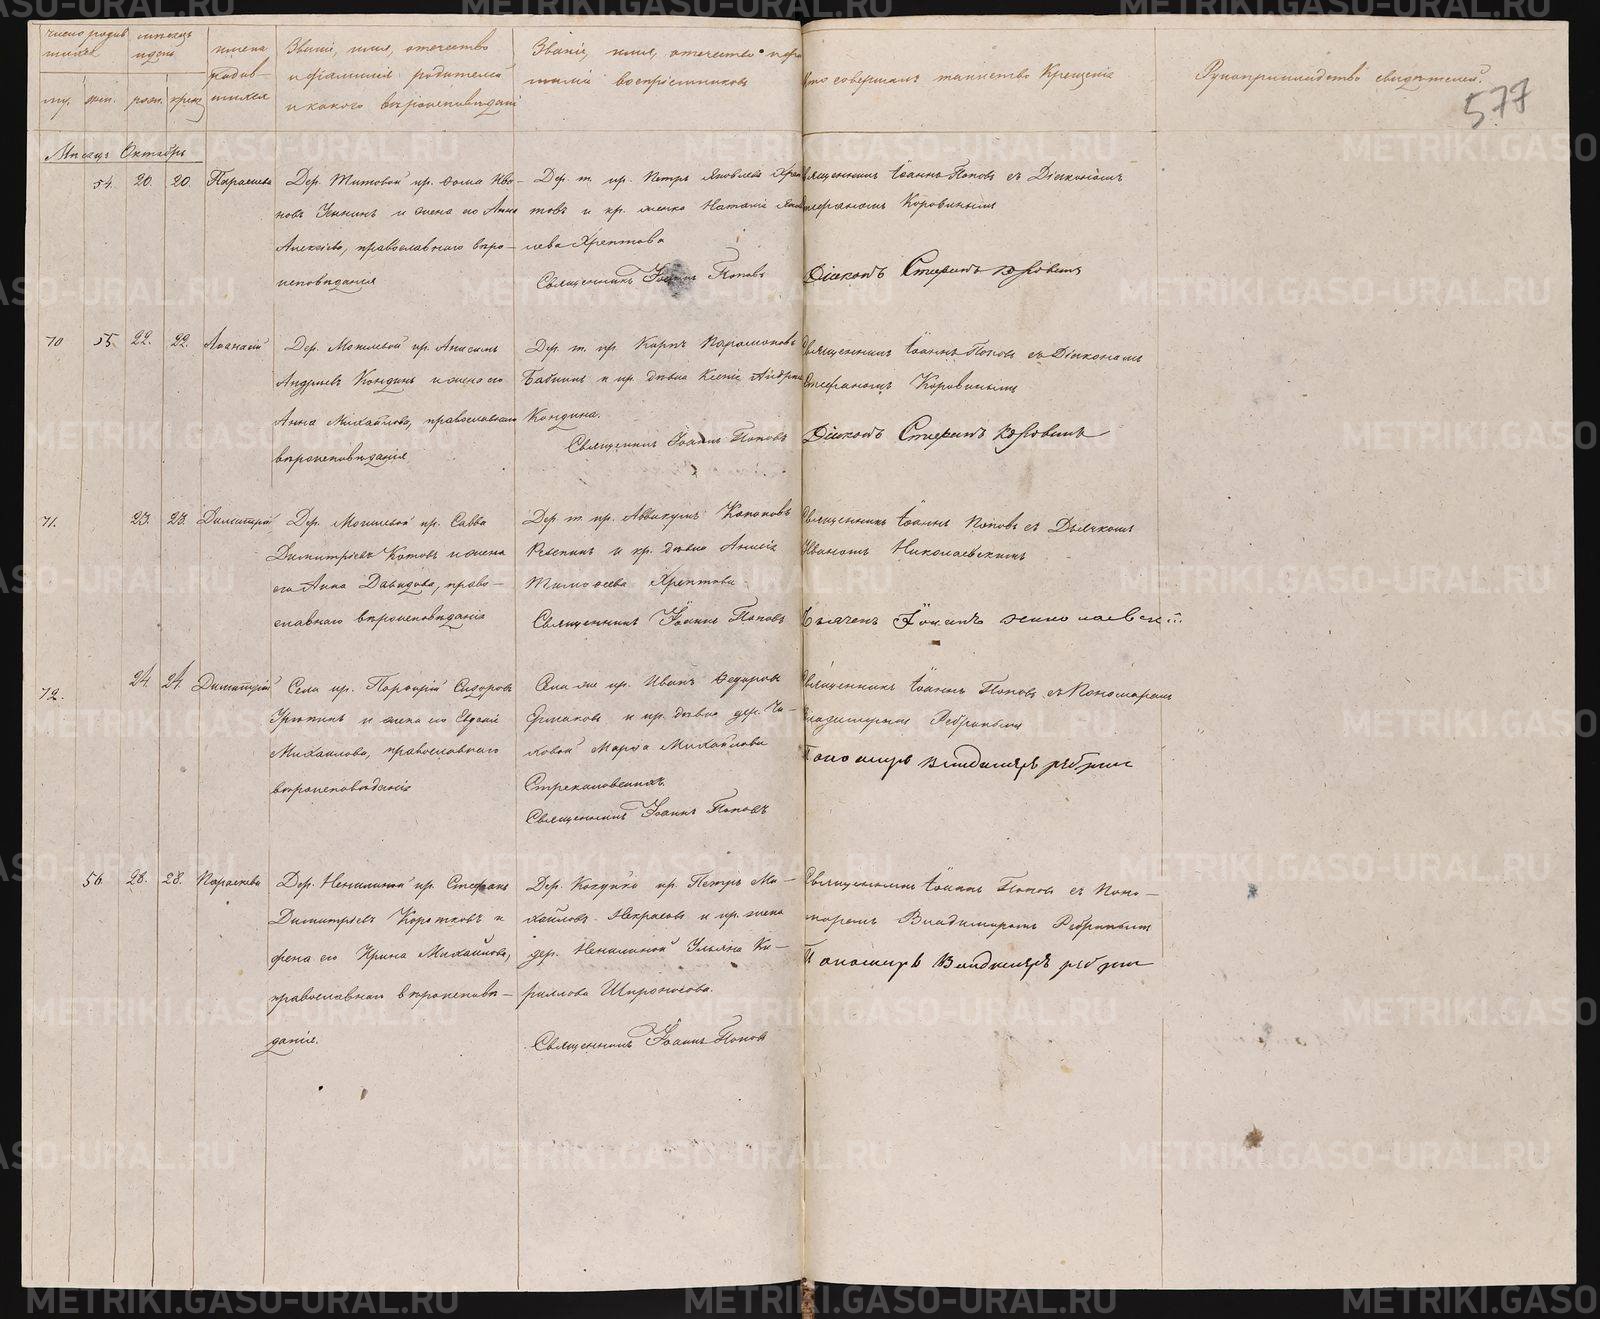 число родив
шихся
муж. жен.
месяцъ
и день
рожд. крещ.
имена
родив-
шихся
Званіе, имя, отчество
и фамилія родителей
и какого вѣроисповѣданія
Званіе, имя, отчество и фа
милія воспріемниковъ
Кто совершалъ таинство Крещенія
Рукоприкладство свидѣтелей.
577
Мѣсяцъ Октябрь
54. 20. 20. Параскева
Дер. Титовой кр. Ѳома Ива-
новъ и жена его Анна
Алексіева, православнаго вѣро-
исповѣданія
Дер. т. кр. Петръ Яковлевъ Хреп
товъ и кр. женка Наталія Яков
лева Хрептова
Священникъ Іоаннъ Поповъ
Священникъ Іоаннъ Поповъ съ Діакономъ
Стефаномъ Коровинымъ
Діаконъ Стефанъ Коровинъ
70 55. 22. 22. Аѳанасій
Дер. Могилевой кр. Анисимъ
Андреевъ Кондинъ и жена его
Анна Михайлова, православнаго
вѣроисповѣданія
Дер. т. кр. Карпъ Парамоновъ
Бабинъ и кр. дѣвка Ксенія Андреева
Кондина.
Священникъ Іоаннъ Поповъ
Священникъ Іоаннъ Поповъ съ Діакономъ
Стефаномъ Коровинымъ
Діаконъ Стефанъ Коровинъ
71. 23. 23. Димитрій
Дер. Могилевой кр. Савва
Димитріевъ Котовъ и жена
его Анна Давидова, право-
славнаго вѣроисповѣданія
Дер. т. кр. Аввакумъ Кононовъ
Рѣпкинъ и кр. дѣвка Анисія
Тимоѳеева Хрептова
Священникъ Іоаннъ Поповъ
Священникъ Іоаннъ Поповъ съ Дьячкомъ
Иваномъ Николаевскимъ
Дьячекъ Іоаннъ Николаевскій
72. 24 24. Димитрій
Села кр. Порфирій Сидоровъ
и жена его Евдокія
Михаилова, православнаго
вѣроисповѣданія
Села же кр. Иванъ Ѳедоровъ
Ермаковъ и кр. дѣвка дер. Чи-
ковой Марѳа Михайлова
Стрекаловскихъ
Священникъ Іоаннъ Поповъ
Священникъ Іоаннъ Поповъ съ Пономаремъ
Владимиромъ Ребринымъ
Пономарь Владимиръ Ребринъ
56. 28. 28. Параскева
Дер. Неналиной кр. Стефанъ
Димитріевъ Коротковъ и
жена его Ирина Михайлова,
православнаго вѣроисповѣ-
данія.
Дер. Кокуйко кр. Петръ Ми-
хайловъ Некрасовъ и кр. женка
дер. Неналиной Ульяна Ки-
риллова Широносова.
Священникъ Іоаннъ Поповъ
Священникъ Іоаннъ Поповъ съ Поно-
маремъ Владимиромъ Ребринымъ
Пономарь Владимиръ Ребринъ
METRIKI.GASO-URAL.RU